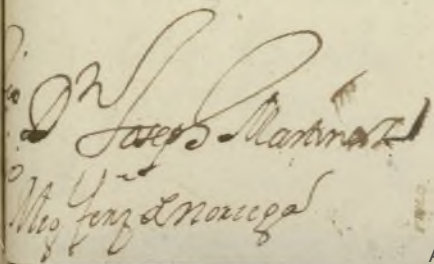 Dn Joseph Martinez
Mig fernz de noriega